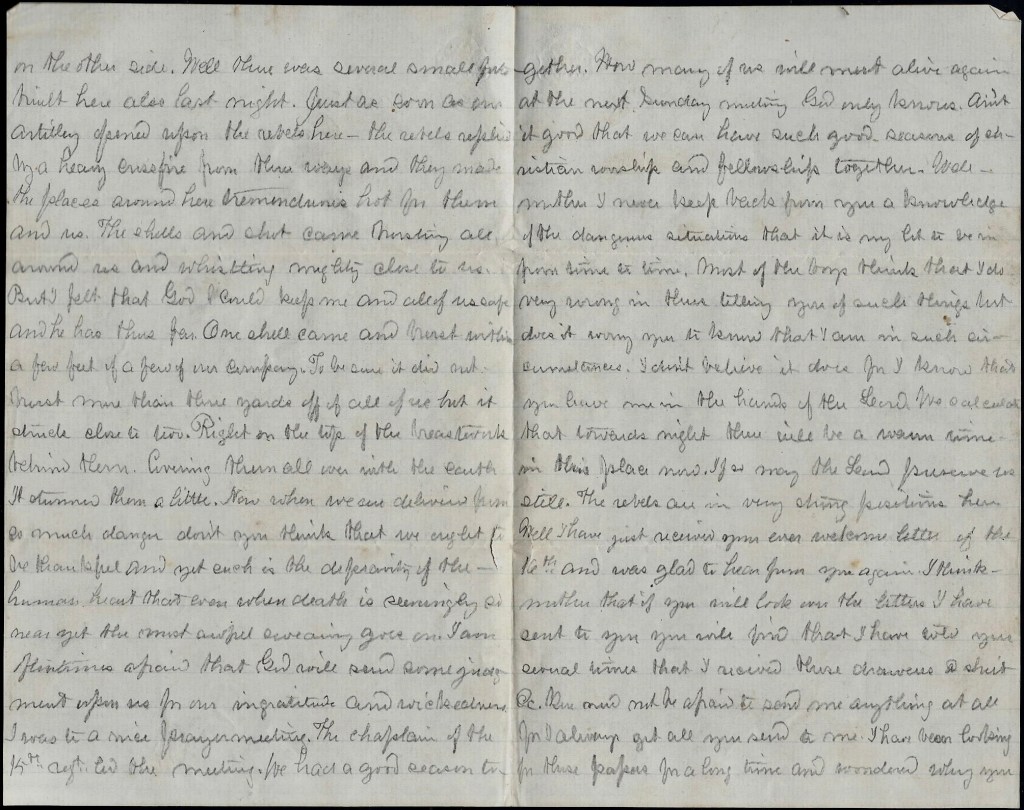 on the other side. Well there was several small forts
built here also last night. Just as soon as our
artillery opened upon the rebels here – the rebels replied
by a heavy crossfire from three ways and they made
the places around here tremendunes hot for them
and us. The shells and shot came bursting all
around us and whistling mighty close to us.
But I felt that God could keep me and all of us safe
and he has thus far. One shell came and burst within
a few feet of a few of our company. To be sure it did not
burst more than three yards off of all of us but it
struck close to two. Right on the top of the breastwork
behind them. Covering them all over with the earth
It stunned them a little. Now when we are delivered from
so much danger don't you think that we ought to
be thankful and yet such is the depravity of the –
human heart that even when death is seemingly so
near yet the most awful swearing goes on. I am
oftentimes afraid that God will send some judg-
ment upon us for our ingratitude and wickedness
I was to a nice prayermeeting. The chaplain of the
15th regt. led the meeting. We had a good season to-
gether. How many of us will meet alive again
at the next Sunday meeting God only knows. Aint
it good that we can have such good seasons of ch-
ristian worship and fellowship together. Well –
mother I never keep back from you a knowledge
of the dangerous situations that it is my lot to be in
from time to time. Most of the boys think that I do
very wrong in thus telling you of such things but
does it worry you to know that I am in such cir-
cumstances. I don't believe it does for I know that
you leave me in the hands of the Lord. We calculate
that towards night there will be a warm time
in this place now. If so may the Lord preserve us
still. The rebels are in very strong positions here
Well I have just received your ever welcome letter of the
16th and was glad to hear from you again. I think –
mother that if you will look over the letters I have
sent to you you will find that I have told you
several times that I recieved those drawers & shirt
&c. You need not be afraid to send me anything at all
for I always get all you send to me. I have been looking
for those papers for a long time and wondered why you